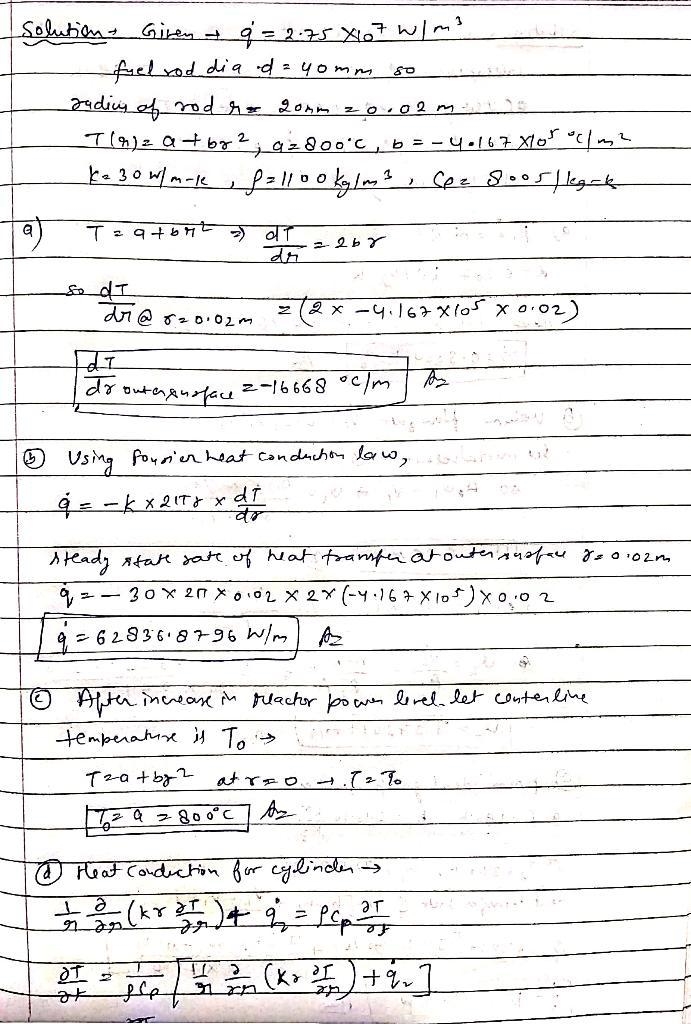 Solution → Given → q̇ = 2.75 X10⁷ W/m³
fuel rod dia d = 40mm so
radius of rod r = 20mm = 0.02 m
T(r) = a + br², a = 800°C, b = -4.167 X10⁵ °C/m²
K = 30 W/m-k, ρ = 1100 kg/m³, Cp = 800 J/kg-k
a) T = a + br² ⇒ dT/dr = 2br
so dT/dr @ r=0.02m = (2 x -4.167 X10⁵ x 0.02)
dT/dr outersurface = -16668 °C/m
ⓑ Using fourier heat conduction law,
q̇ = -K x 2πr x dT/dr
Steady state rate of heat transfer at outer surface r=0.02m
q̇ = - 30 x 2π x 0.02 x 2x (-4.167 X10⁵) x 0.02
q̇ = 62836.8796 W/m
ⓒ After increase in reactor power level let centerline
temperature is T₀ →
T = a + br² at r = 0 → T = T₀
T₀ = a = 800°C
ⓓ Heat Conduction for cylinder →
1/r ∂/∂r (kr ∂T/∂r) + q̇₂ = ρCp ∂T/∂t
∂T/∂t = 1/ρCp [1/r ∂/∂r (Kr ∂T/∂r) + q̇₂]